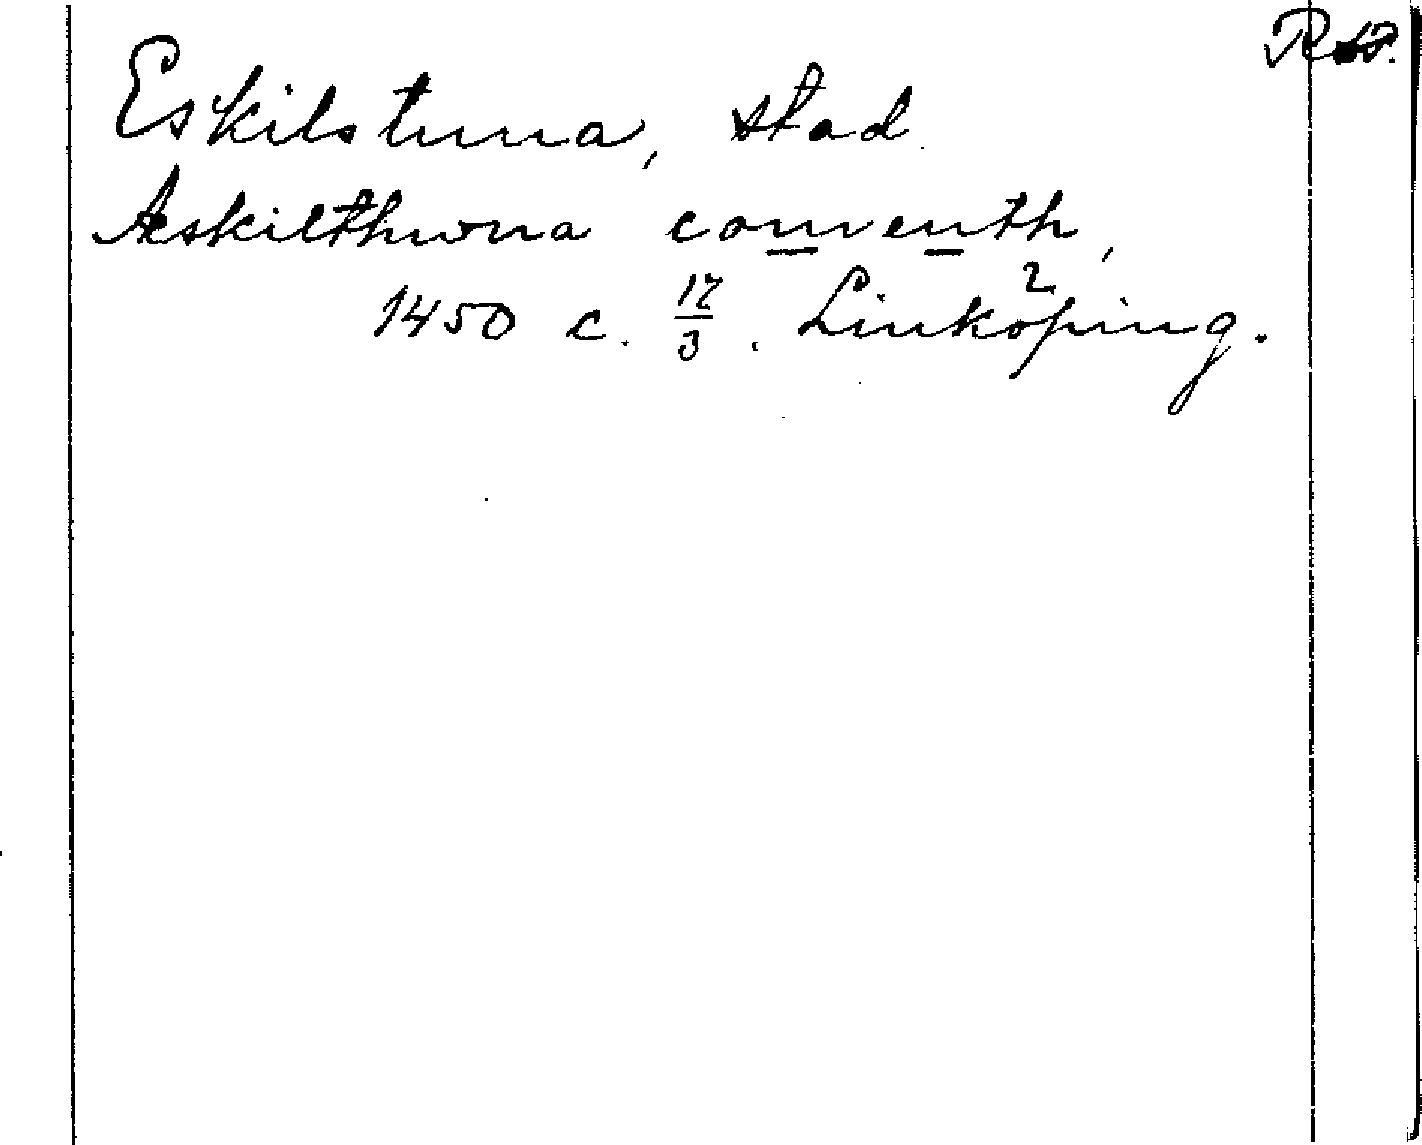 Eskilstuna, stad
Aeskilthwna conventh,
1450 c. 17/3. Linköping.